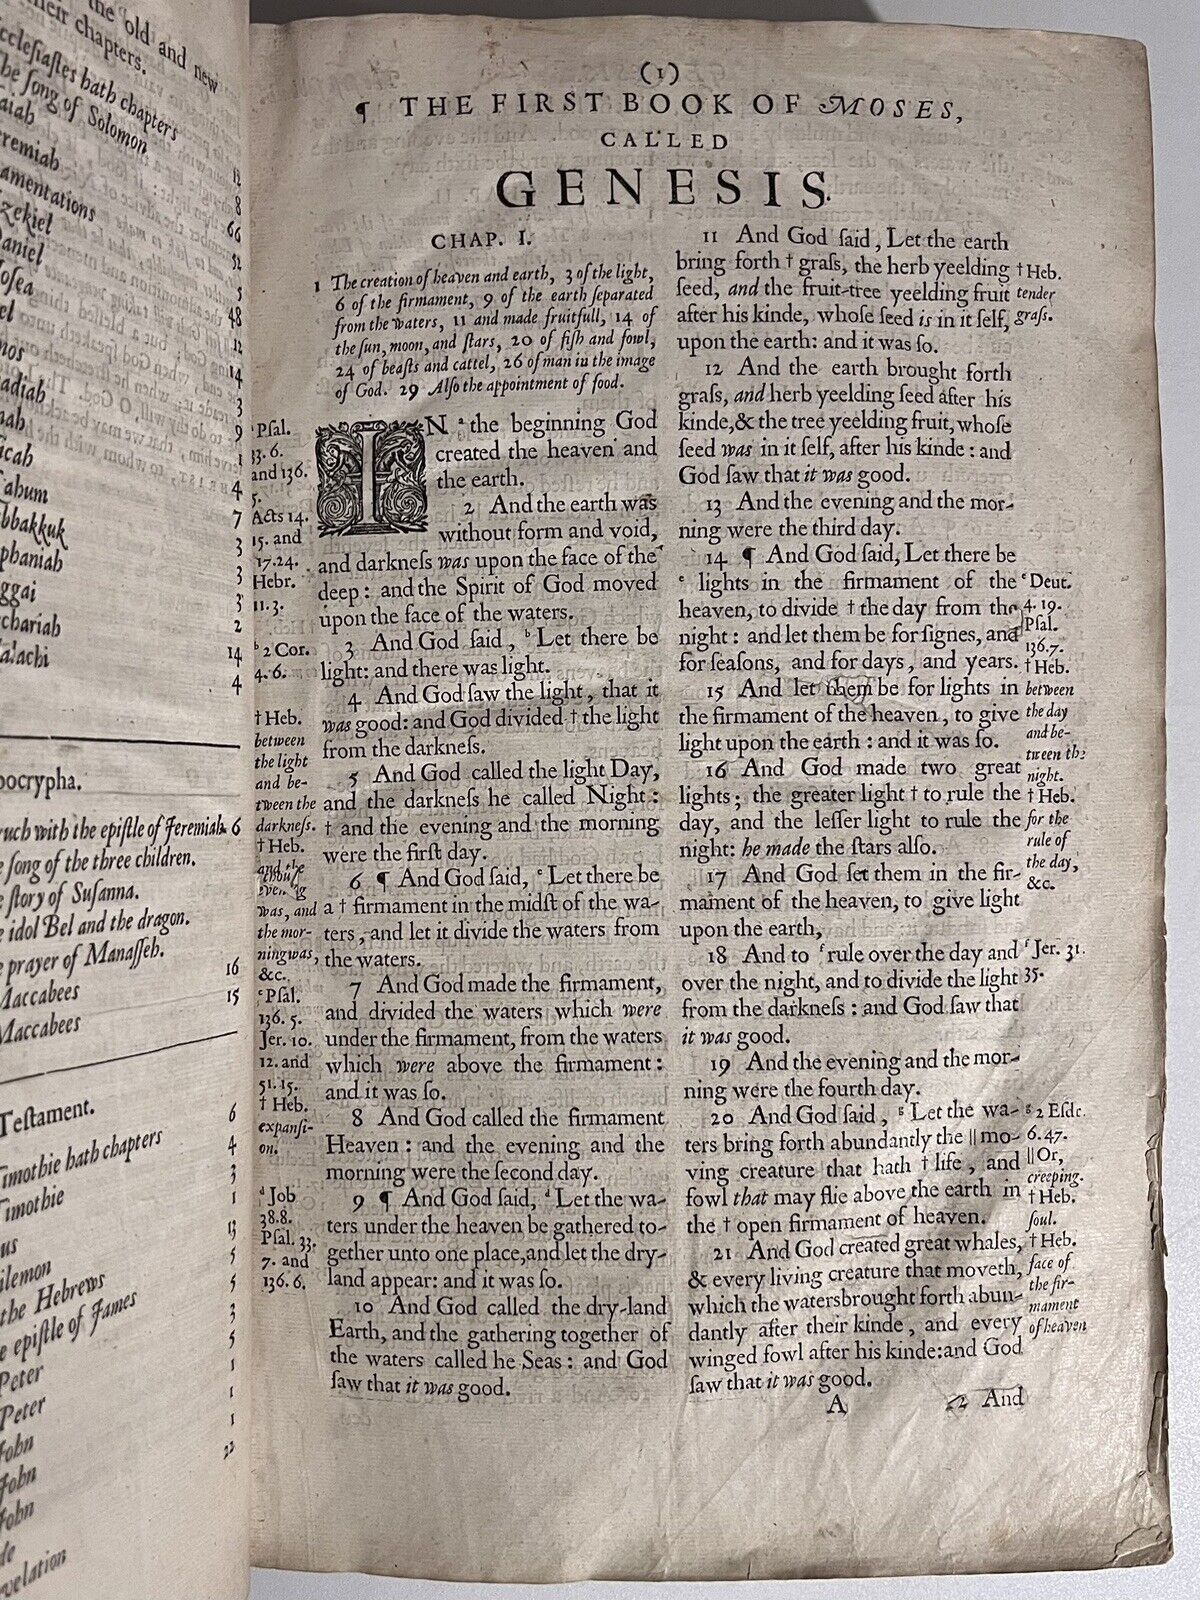 the old and new
their chapters.
Ecclesiastes hath chapters
The song of Solomon
Isaiah
Jeremiah 12
Lamentations 8
Ezekiel 66
Daniel 52
Hosea 5
48
12
14
3
9
1
4
7
3
3
2
14
4
Apocrypha.
with the epistle of Jeremiah. 6
song of the three children.
story of Susanna.
idol Bel and the dragon.
prayer of Manasseh.
Maccabees 16
Maccabees 15
Testament.
Timothie hath chapters 6
Timothie 4
3
1
the Hebrews 13
epistle of James 5
Peter 5
Peter 3
John 5
John 1
John 1
1
22
(1)
¶ THE FIRST BOOK OF MOSES,
CALLED
GENESIS.
CHAP. I.
1 The creation of heaven and earth, 3 of the light,
6 of the firmament, 9 of the earth ſeparated
from the waters, 11 and made fruitfull, 14 of
the ſun, moon, and ſtars, 20 of fiſh and fowl,
24 of beaſts and cattel, 26 of man in the image
of God. 29 Alſo the appointment of food.
IN ᵃ the beginning God
created the heaven and
the earth.
2 And the earth was
without form and void,
and darkneſs was upon the face of the
deep: and the Spirit of God moved
upon the face of the waters.
3 And God ſaid, ᵇ Let there be
light: and there was light.
4 And God ſaw the light, that it
was good: and God divided † the light
from the darkneſs.
5 And God called the light Day,
and the darkneſs he called Night:
† and the evening and the morning
were the firſt day.
6 ¶ And God ſaid, ᶜ Let there be
a † firmament in the midſt of the wa-
ters, and let it divide the waters from
the waters.
7 And God made the firmament,
and divided the waters which were
under the firmament, from the waters
which were above the firmament:
and it was ſo.
8 And God called the firmament
Heaven: and the evening and the
morning were the ſecond day.
9 ¶ And God ſaid, ᵈ Let the wa-
ters under the heaven be gathered to-
gether unto one place, and let the dry-
land appear: and it was ſo.
10 And God called the dry-land
Earth, and the gathering together of
the waters called he Seas: and God
ſaw that it was good.
ᵃ Pſal.
33. 6.
and 136.
5.
Acts 14.
15. and
17.24.
Hebr.
11. 3.
ᵇ 2 Cor.
4. 6.
† Heb.
between
the light
and be-
tween the
darkneſs.
† Heb.
and the
evening
was, and
the mor-
ning was,
&c.
ᶜ Pſal.
136. 5.
Jer. 10.
12. and
51. 15.
† Heb.
expanſi-
on.
ᵈ Job
38.8.
Pſal. 33.
7. and
136. 6.
11 And God ſaid, Let the earth
bring forth † graſs, the herb yeelding
ſeed, and the fruit-tree yeelding fruit
after his kinde, whoſe ſeed is in it ſelf,
upon the earth: and it was ſo.
12 And the earth brought forth
graſs, and herb yeelding ſeed after his
kinde, & the tree yeelding fruit, whoſe
ſeed was in it ſelf, after his kinde: and
God ſaw that it was good.
13 And the evening and the mor-
ning were the third day.
14 ¶ And God ſaid, Let there be
ᵉ lights in the firmament of the
heaven, to divide † the day from the
night: and let them be for ſignes, and
for ſeaſons, and for days, and years.
15 And let them be for lights in
the firmament of the heaven, to give
light upon the earth: and it was ſo.
16 And God made two great
lights; the greater light † to rule the
day, and the leſſer light to rule the
night: he made the ſtars alſo.
17 And God ſet them in the fir-
mament of the heaven, to give light
upon the earth,
18 And to ᶠ rule over the day and
over the night, and to divide the light
from the darkneſs: and God ſaw that
it was good.
19 And the evening and the mor-
ning were the fourth day.
20 And God ſaid, ᵍ Let the wa-
ters bring forth abundantly the || mo-
ving creature that hath † life, and
fowl that may flie above the earth in
the † open firmament of heaven.
21 And God created great whales,
& every living creature that moveth,
which the waters brought forth abun-
dantly after their kinde, and every
winged fowl after his kinde: and God
ſaw that it was good.
† Heb.
tender
graſs.
ᵉ Deut.
4. 19.
Pſal.
136.7.
† Heb.
between
the day
and be-
tween the
night.
† Heb.
for the
rule of
the day,
&c.
ᶠ Jer. 31.
35.
ᵍ 2 Eſdr.
6. 47.
|| Or,
creeping.
† Heb.
ſoul.
† Heb.
face of
the fir-
mament
of heaven
A 22 And